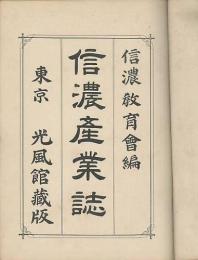 信濃敎育會編
信濃產業誌
東京 光風館藏版